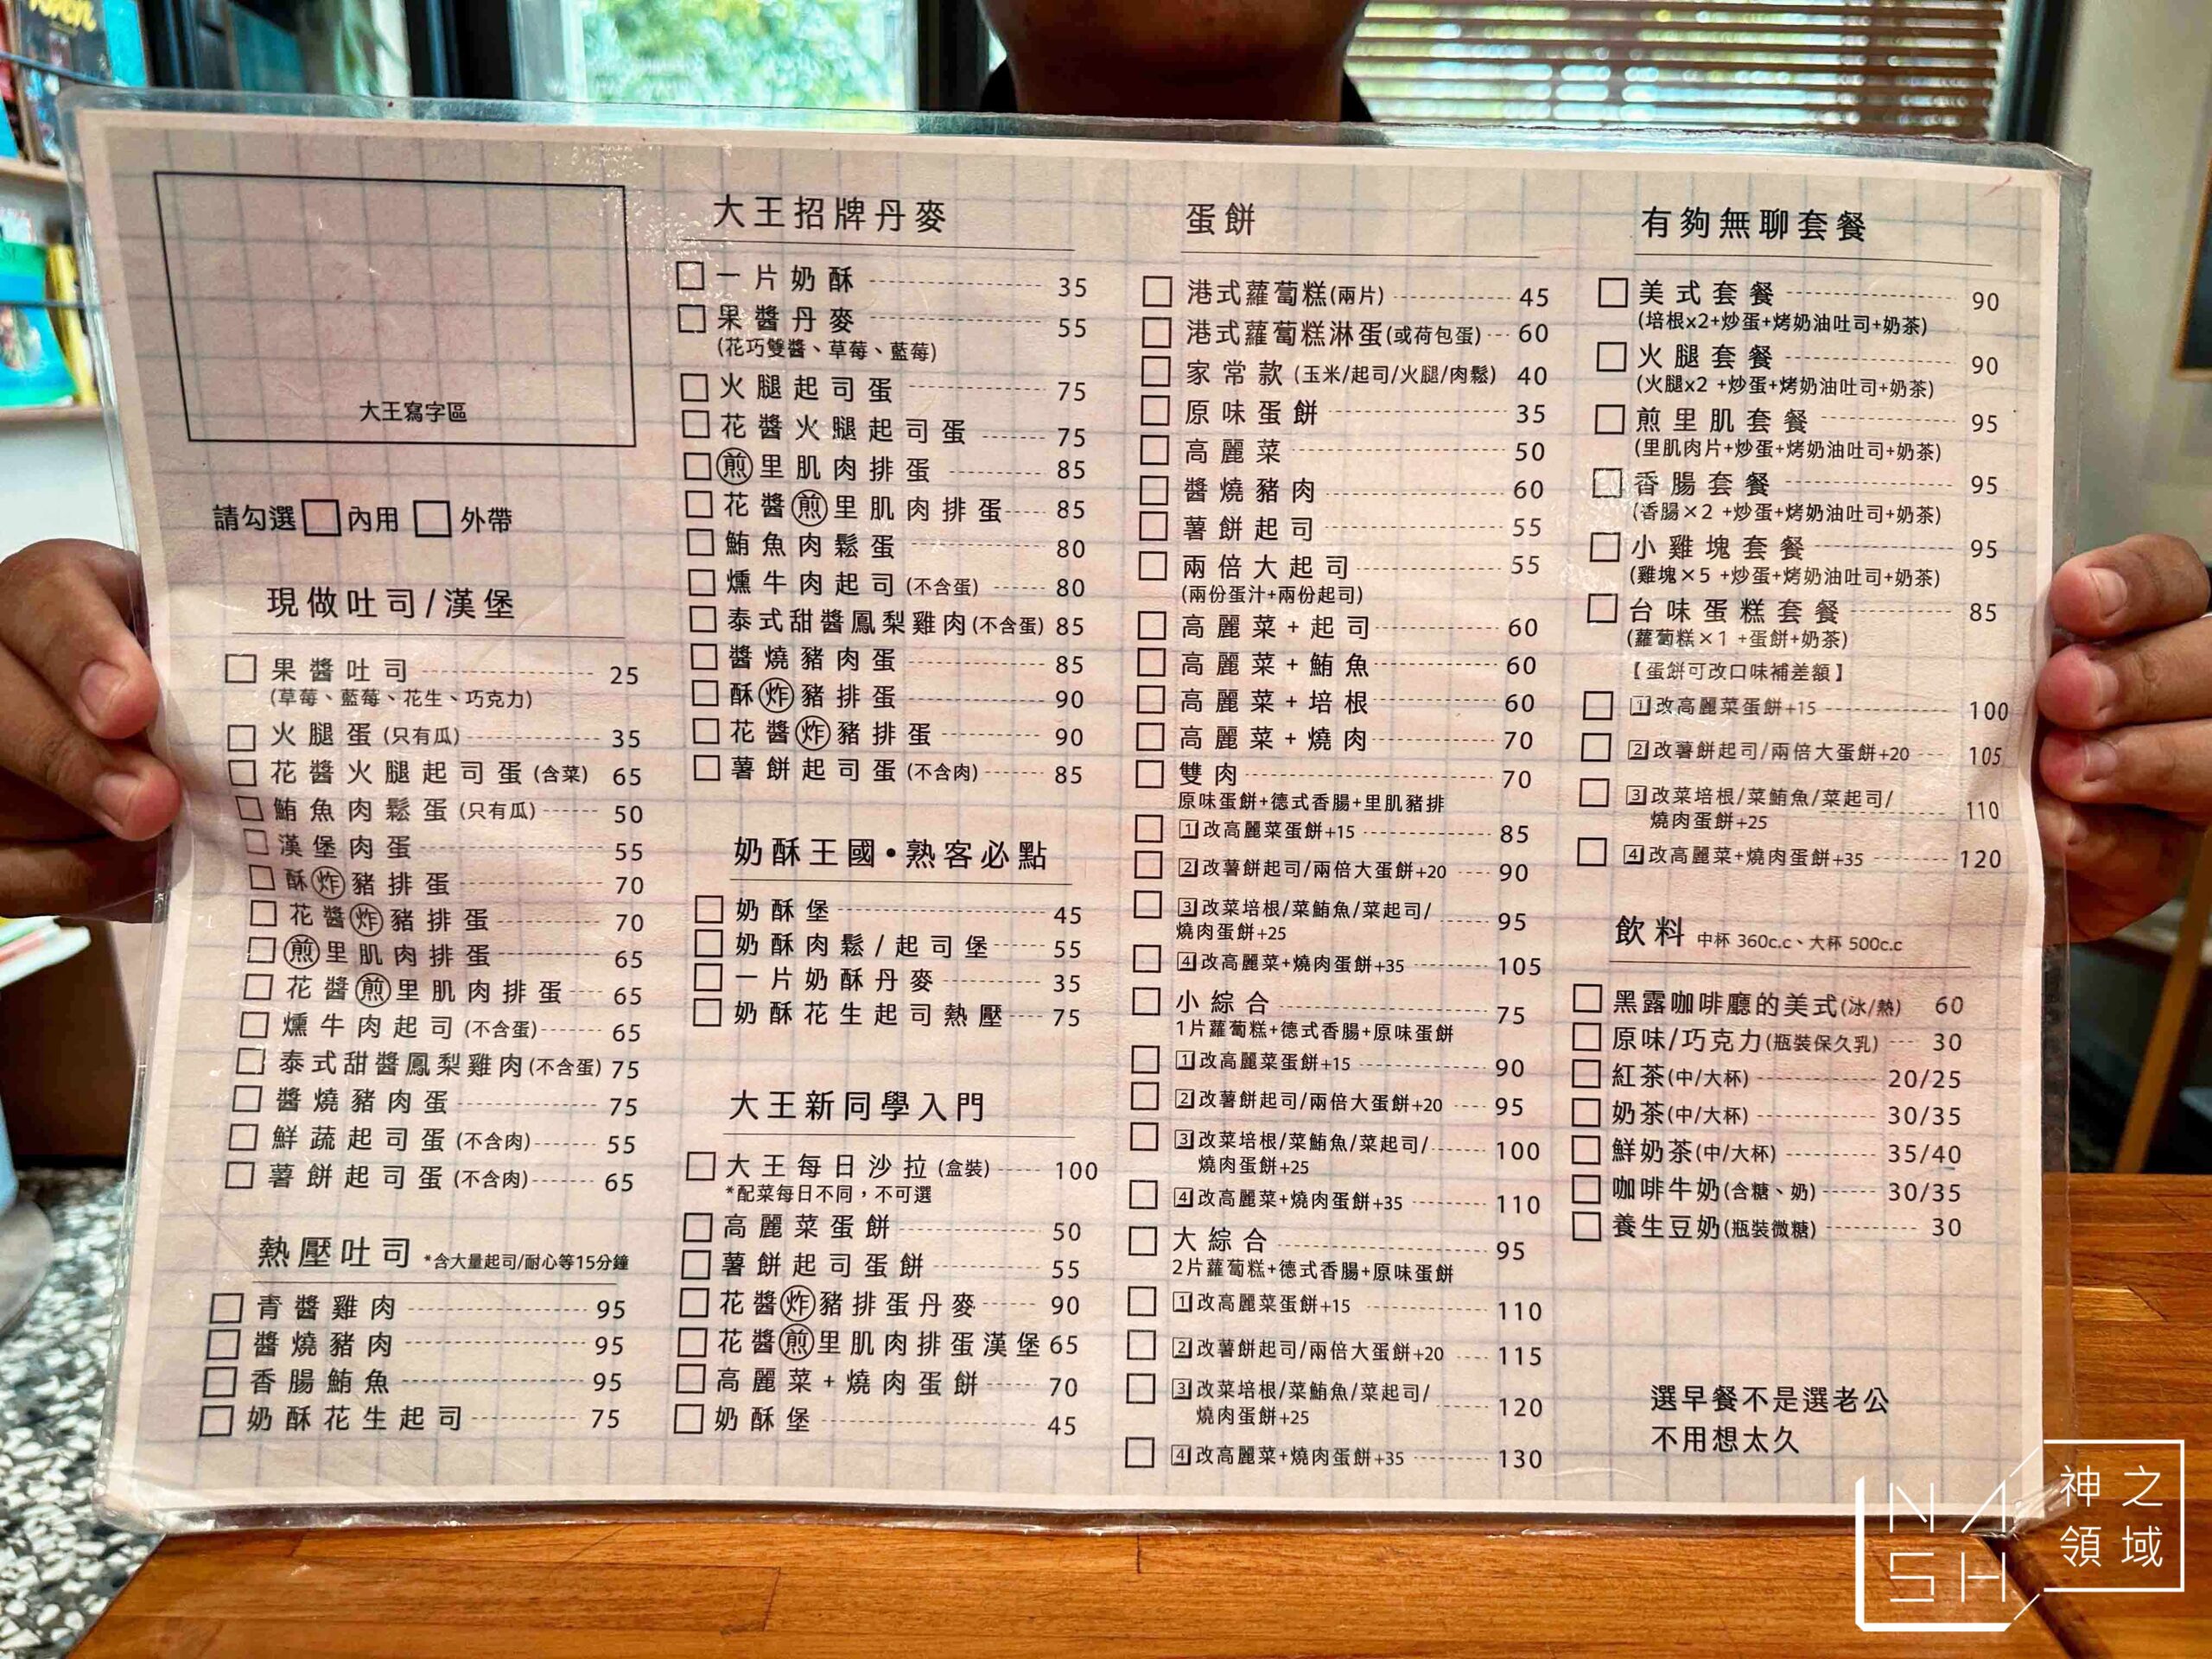 大王寫字區
請勾選 內用 外帶
現做吐司/漢堡
果醬吐司 25
(草莓、藍莓、花生、巧克力)
火腿蛋(只有瓜) 35
花醬火腿起司蛋(含菜) 65
鮪魚肉鬆蛋(只有瓜) 50
漢堡肉蛋 55
酥炸豬排蛋 70
花醬炸豬排蛋 70
煎里肌肉排蛋 65
花醬煎里肌肉排蛋 65
燻牛肉起司(不含蛋) 65
泰式甜醬鳳梨雞肉(不含蛋) 75
醬燒豬肉蛋 75
鮮蔬起司蛋(不含肉) 55
薯餅起司蛋(不含肉) 65
熱壓吐司 *含大量起司/耐心等15分鐘
青醬雞肉 95
醬燒豬肉 95
香腸鮪魚 95
奶酥花生起司 75
大王招牌丹麥
一片奶酥 35
果醬丹麥 55
(花巧雙醬、草莓、藍莓)
火腿起司蛋 75
花醬火腿起司蛋 75
煎里肌肉排蛋 85
花醬煎里肌肉排蛋 85
鮪魚肉鬆蛋 80
燻牛肉起司(不含蛋) 80
泰式甜醬鳳梨雞肉(不含蛋) 85
醬燒豬肉蛋 85
酥炸豬排蛋 90
花醬炸豬排蛋 90
薯餅起司蛋(不含肉) 85
奶酥王國•熟客必點
奶酥堡 45
奶酥肉鬆/起司堡 55
一片奶酥丹麥 35
奶酥花生起司熱壓 75
大王新同學入門
大王每日沙拉(盒裝) 100
*配菜每日不同，不可選
高麗菜蛋餅 50
薯餅起司蛋餅 55
花醬炸豬排蛋丹麥 90
花醬煎里肌肉排蛋漢堡 65
高麗菜+燒肉蛋餅 70
奶酥堡 45
蛋餅
港式蘿蔔糕(兩片) 45
港式蘿蔔糕淋蛋(或荷包蛋) 60
家常款(玉米/起司/火腿/肉鬆) 40
原味蛋餅 35
高麗菜 50
醬燒豬肉 60
薯餅起司 55
兩倍大起司 55
(兩份蛋汁+兩份起司)
高麗菜+起司 60
高麗菜+鮪魚 60
高麗菜+培根 60
高麗菜+燒肉 70
雙肉 70
原味蛋餅+德式香腸+里肌豬排
1改高麗菜蛋餅+15 85
2改薯餅起司/兩倍大蛋餅+20 90
3改菜培根/菜鮪魚/菜起司/ 95
燒肉蛋餅+25
4改高麗菜+燒肉蛋餅+35 105
小綜合 75
1片蘿蔔糕+德式香腸+原味蛋餅
1改高麗菜蛋餅+15 90
2改薯餅起司/兩倍大蛋餅+20 95
3改菜培根/菜鮪魚/菜起司/ 100
燒肉蛋餅+25
4改高麗菜+燒肉蛋餅+35 110
大綜合 95
2片蘿蔔糕+德式香腸+原味蛋餅
1改高麗菜蛋餅+15 110
2改薯餅起司/兩倍大蛋餅+20 115
3改菜培根/菜鮪魚/菜起司/ 120
燒肉蛋餅+25
4改高麗菜+燒肉蛋餅+35 130
有夠無聊套餐
美式套餐 90
(培根x2+炒蛋+烤奶油吐司+奶茶)
火腿套餐 90
(火腿x2 +炒蛋+烤奶油吐司+奶茶)
煎里肌套餐 95
(里肌肉片+炒蛋+烤奶油吐司+奶茶)
香腸套餐 95
(香腸×2 +炒蛋+烤奶油吐司+奶茶)
小雞塊套餐 95
(雞塊×5 +炒蛋+烤奶油吐司+奶茶)
台味蛋糕套餐 85
(蘿蔔糕×1 +蛋餅+奶茶)
【蛋餅可改口味補差額】
1改高麗菜蛋餅+15 100
2改薯餅起司/兩倍大蛋餅+20 105
3改菜培根/菜鮪魚/菜起司/ 110
燒肉蛋餅+25
4改高麗菜+燒肉蛋餅+35 120
飲料 中杯 360c.c、大杯 500c.c
黑露咖啡廳的美式(冰/熱) 60
原味/巧克力(瓶裝保久乳) 30
紅茶(中/大杯) 20/25
奶茶(中/大杯) 30/35
鮮奶茶(中/大杯) 35/40
咖啡牛奶(含糖、奶) 30/35
養生豆奶(瓶裝微糖) 30
選早餐不是選老公
不用想太久
NASH
神之
領域